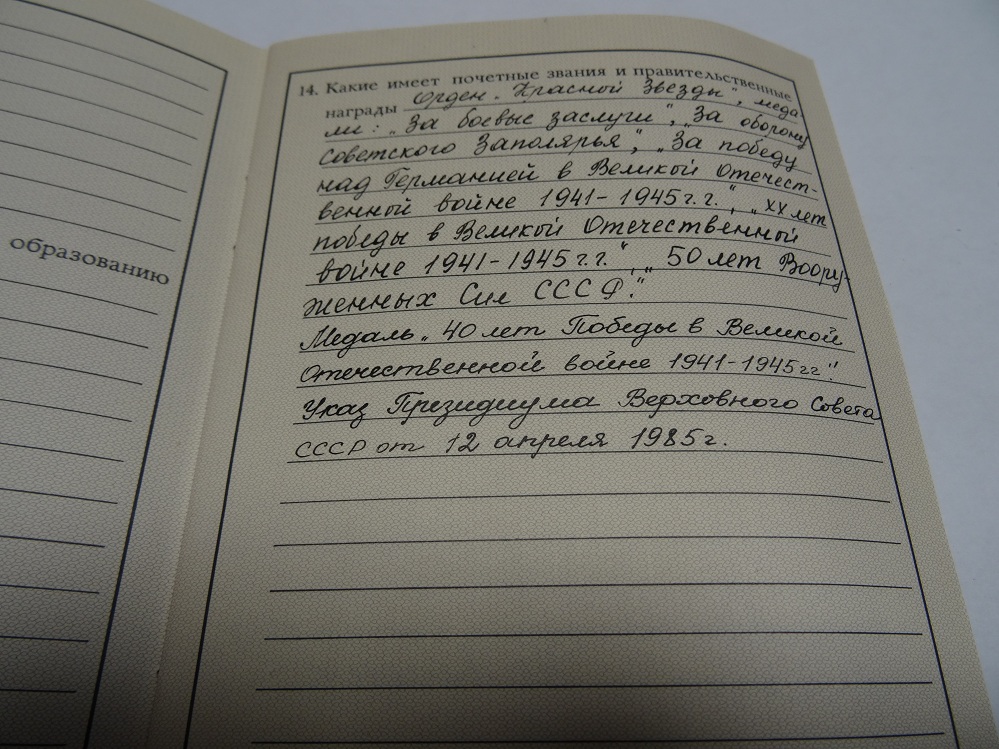 образованию
14. Какие имеет почетные звания и правительственные
награды Орден „Красной Звезды", меда-
ли: „За боевые заслуги", „За оборону
Советского Заполярья", „За победу
над Германией в Великой Отечест-
венной войне 1941-1945 г.г.", „XX лет
победы в Великой Отечественной
войне 1941-1945 г.г.", „50 лет Воору-
женных Сил СССР."
Медаль „40 лет Победы в Великой
Отечественной войне 1941-1945 гг".
Указ Президиума Верховного Совета
СССР от 12 апреля 1985г.